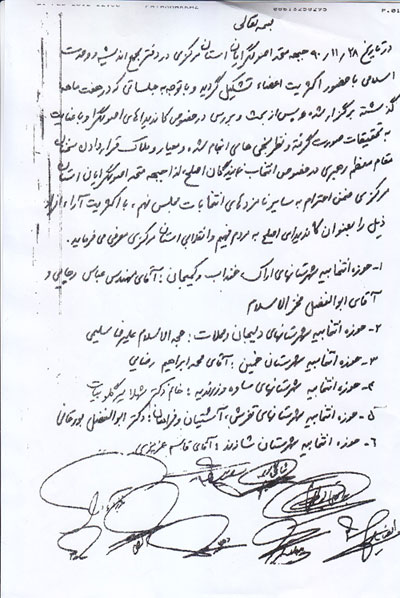 بسمه تعالی
در تاریخ ۹۰/۱۱/۲۸ جبهه متحد اصولگرایان استان مرکزی در دفتر مجمع اندیشه وحدت
اسلامی با حضور اکثریت اعضاء تشکیل گردید و با توجه به جلساتی که در هفت ماهه
گذشته برگزار شده و پس از بحث و بررسی در خصوص کاندیداهای اصولگرا و با عنایت
به تحقیقات صورت گرفته و نظرسنجی های انجام شده و معیار و ملاک قرار دادن سخنان
مقام معظم رهبری در خصوص انتخاب نمایندگان اصلح، لذا جبهه متحد اصولگرایان استان
مرکزی ضمن احترام به سایر نامزدهای انتخابات مجلس نهم، با اکثریت آراء، افراد
ذیل را بعنوان کاندیدای اصلح به مردم فهیم و انقلابی استان مرکزی معرفی می فرماید.
۱- حوزه انتخابیه شهرستانهای اراک، خنداب و کمیجان: آقای مهندس عباس رجایی و
آقای ابوالفضل فخرالاسلام
۲- حوزه انتخابیه شهرستانهای دلیجان و محلات: حجه الاسلام علیرضا سلیمی
۳- حوزه انتخابیه شهرستان خمین: آقای محمد ابراهیم رضایی
۴- حوزه انتخابیه شهرستانهای ساوه و زرندیه: خانم دکتر شهلا میرگلو بیات
۵- حوزه انتخابیه شهرستانهای تفرش، آشتیان و فراهان: دکتر ابوالفضل بورقانی
۶- حوزه انتخابیه شهرستان شازند: آقای قاسم عزیزی